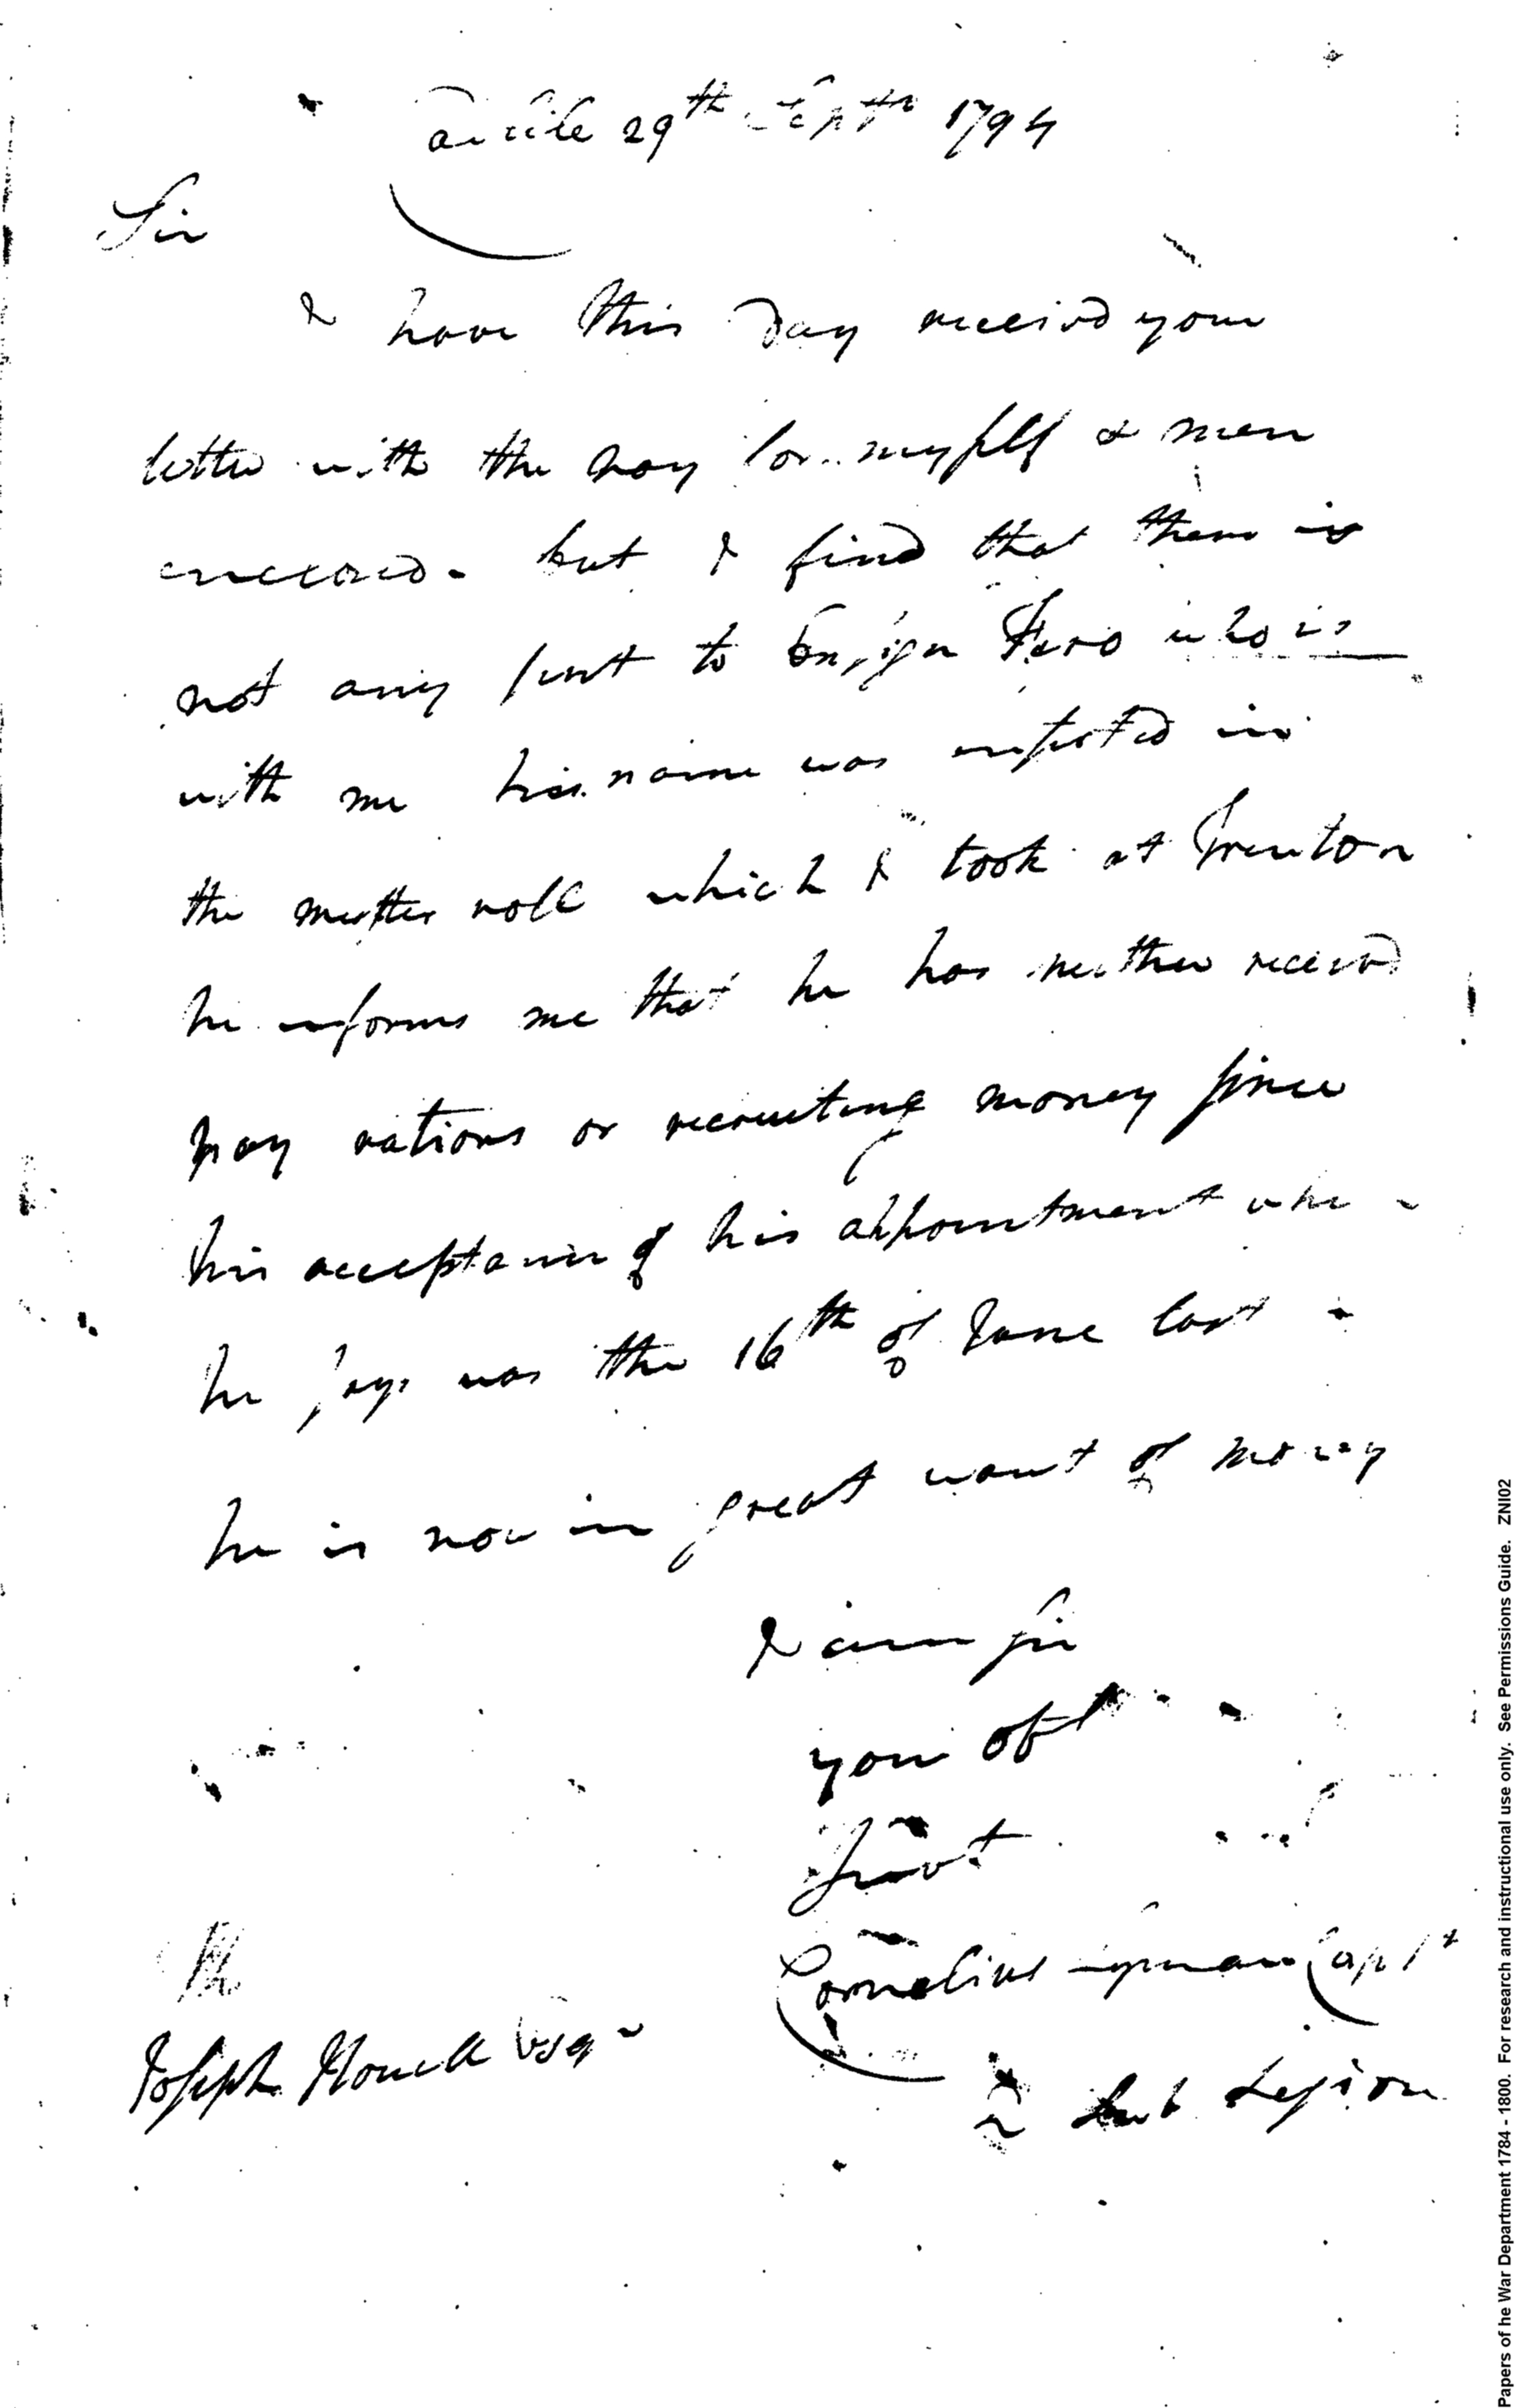 29th Septr 1794
Sir
I have this Day receivd your
letter with the pay for myself & men
enclosed. but I find that there is
not any sent to Ensign Fero who is
with me his name was inserted in
the muster roll which I took at Trenton
he informs me that he has neither receivd
pay rations or recruiting money since
his acceptance of his appointment whe
he says was the 16th of June last
he is now in great want of money
I am Sir
your obt
Servt
Cornelius Lyman Capt
Sub Legion
Joseph Howell Esqr
Papers of he War Department 1784 - 1800. For research and instructional use only. See Permissions Guide. ZNI02